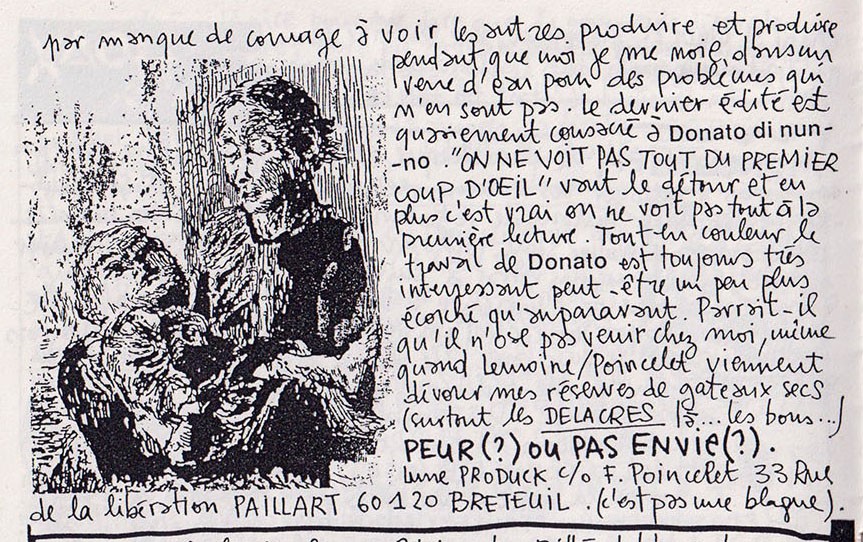 par manque de courage à voir les autres produire et produire
pendant que moi je me noie dans un
verre d'eau pour des problèmes qui
n'en sont pas. le dernier édité est
quasiement consacré à Donato di nun-
-no. "ON NE VOIT PAS TOUT DU PREMIER
COUP D'OEIL" vaut le détour et en
plus c'est vrai on ne voit pas tout à la
première lecture. Tout en couleur le
travail de Donato est toujours très
interessant peut-être un peu plus
écorché qu'auparavant. Parrait-il
qu'il n'ose pas venir chez moi, même
quand Lemoine/Poincelet viennent
dévorer mes réserves de gateaux secs
(surtout les DELACRES là.... les bons...)
PEUR(?) OU PAS ENVIE(?).
Lune PRODUCK c/o F. Poincelet 33 Rue
de la libération PAILLART 60120 BRETEUIL. (c'est pas une blague).